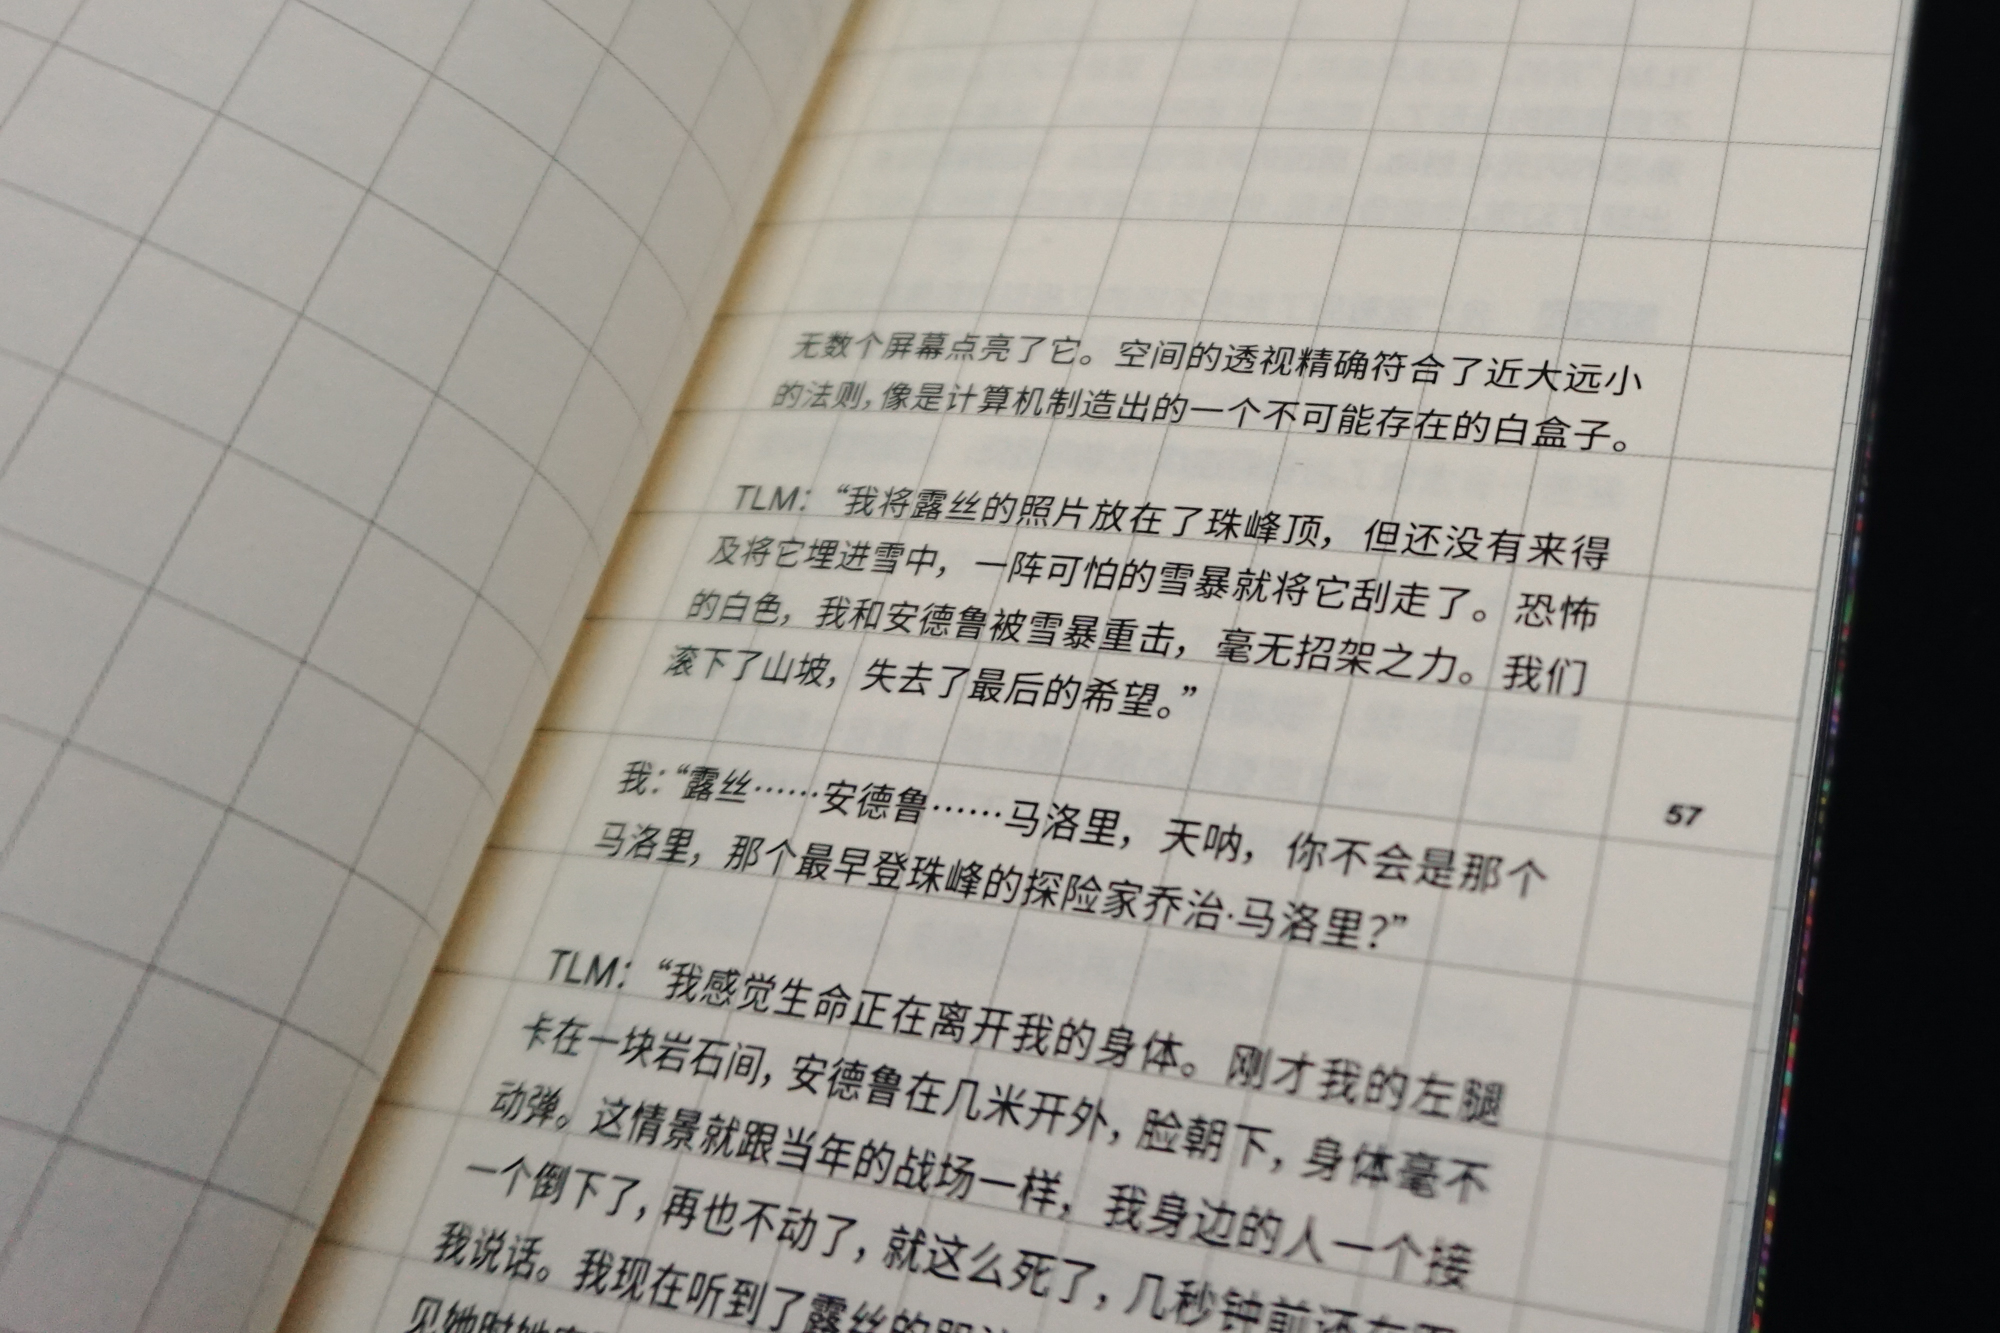 无数个屏幕点亮了它。空间的透视精确符合了近大远小
的法则，像是计算机制造出的一个不可能存在的白盒子。
TLM：“我将露丝的照片放在了珠峰顶，但还没有来得
及将它埋进雪中，一阵可怕的雪暴就将它刮走了。恐怖
的白色，我和安德鲁被雪暴重击，毫无招架之力。我们
滚下了山坡，失去了最后的希望。”
我：“露丝……安德鲁……马洛里，天呐，你不会是那个
57
马洛里，那个最早登珠峰的探险家乔治·马洛里？”
TLM：“我感觉生命正在离开我的身体。刚才我的左腿
卡在一块岩石间，安德鲁在几米开外，脸朝下，身体毫不
动弹。这情景就跟当年的战场一样，我身边的人一个接
一个倒下了，再也不动了，就这么死了，几秒钟前还在
我说话。我现在听到了露丝的
见她时她